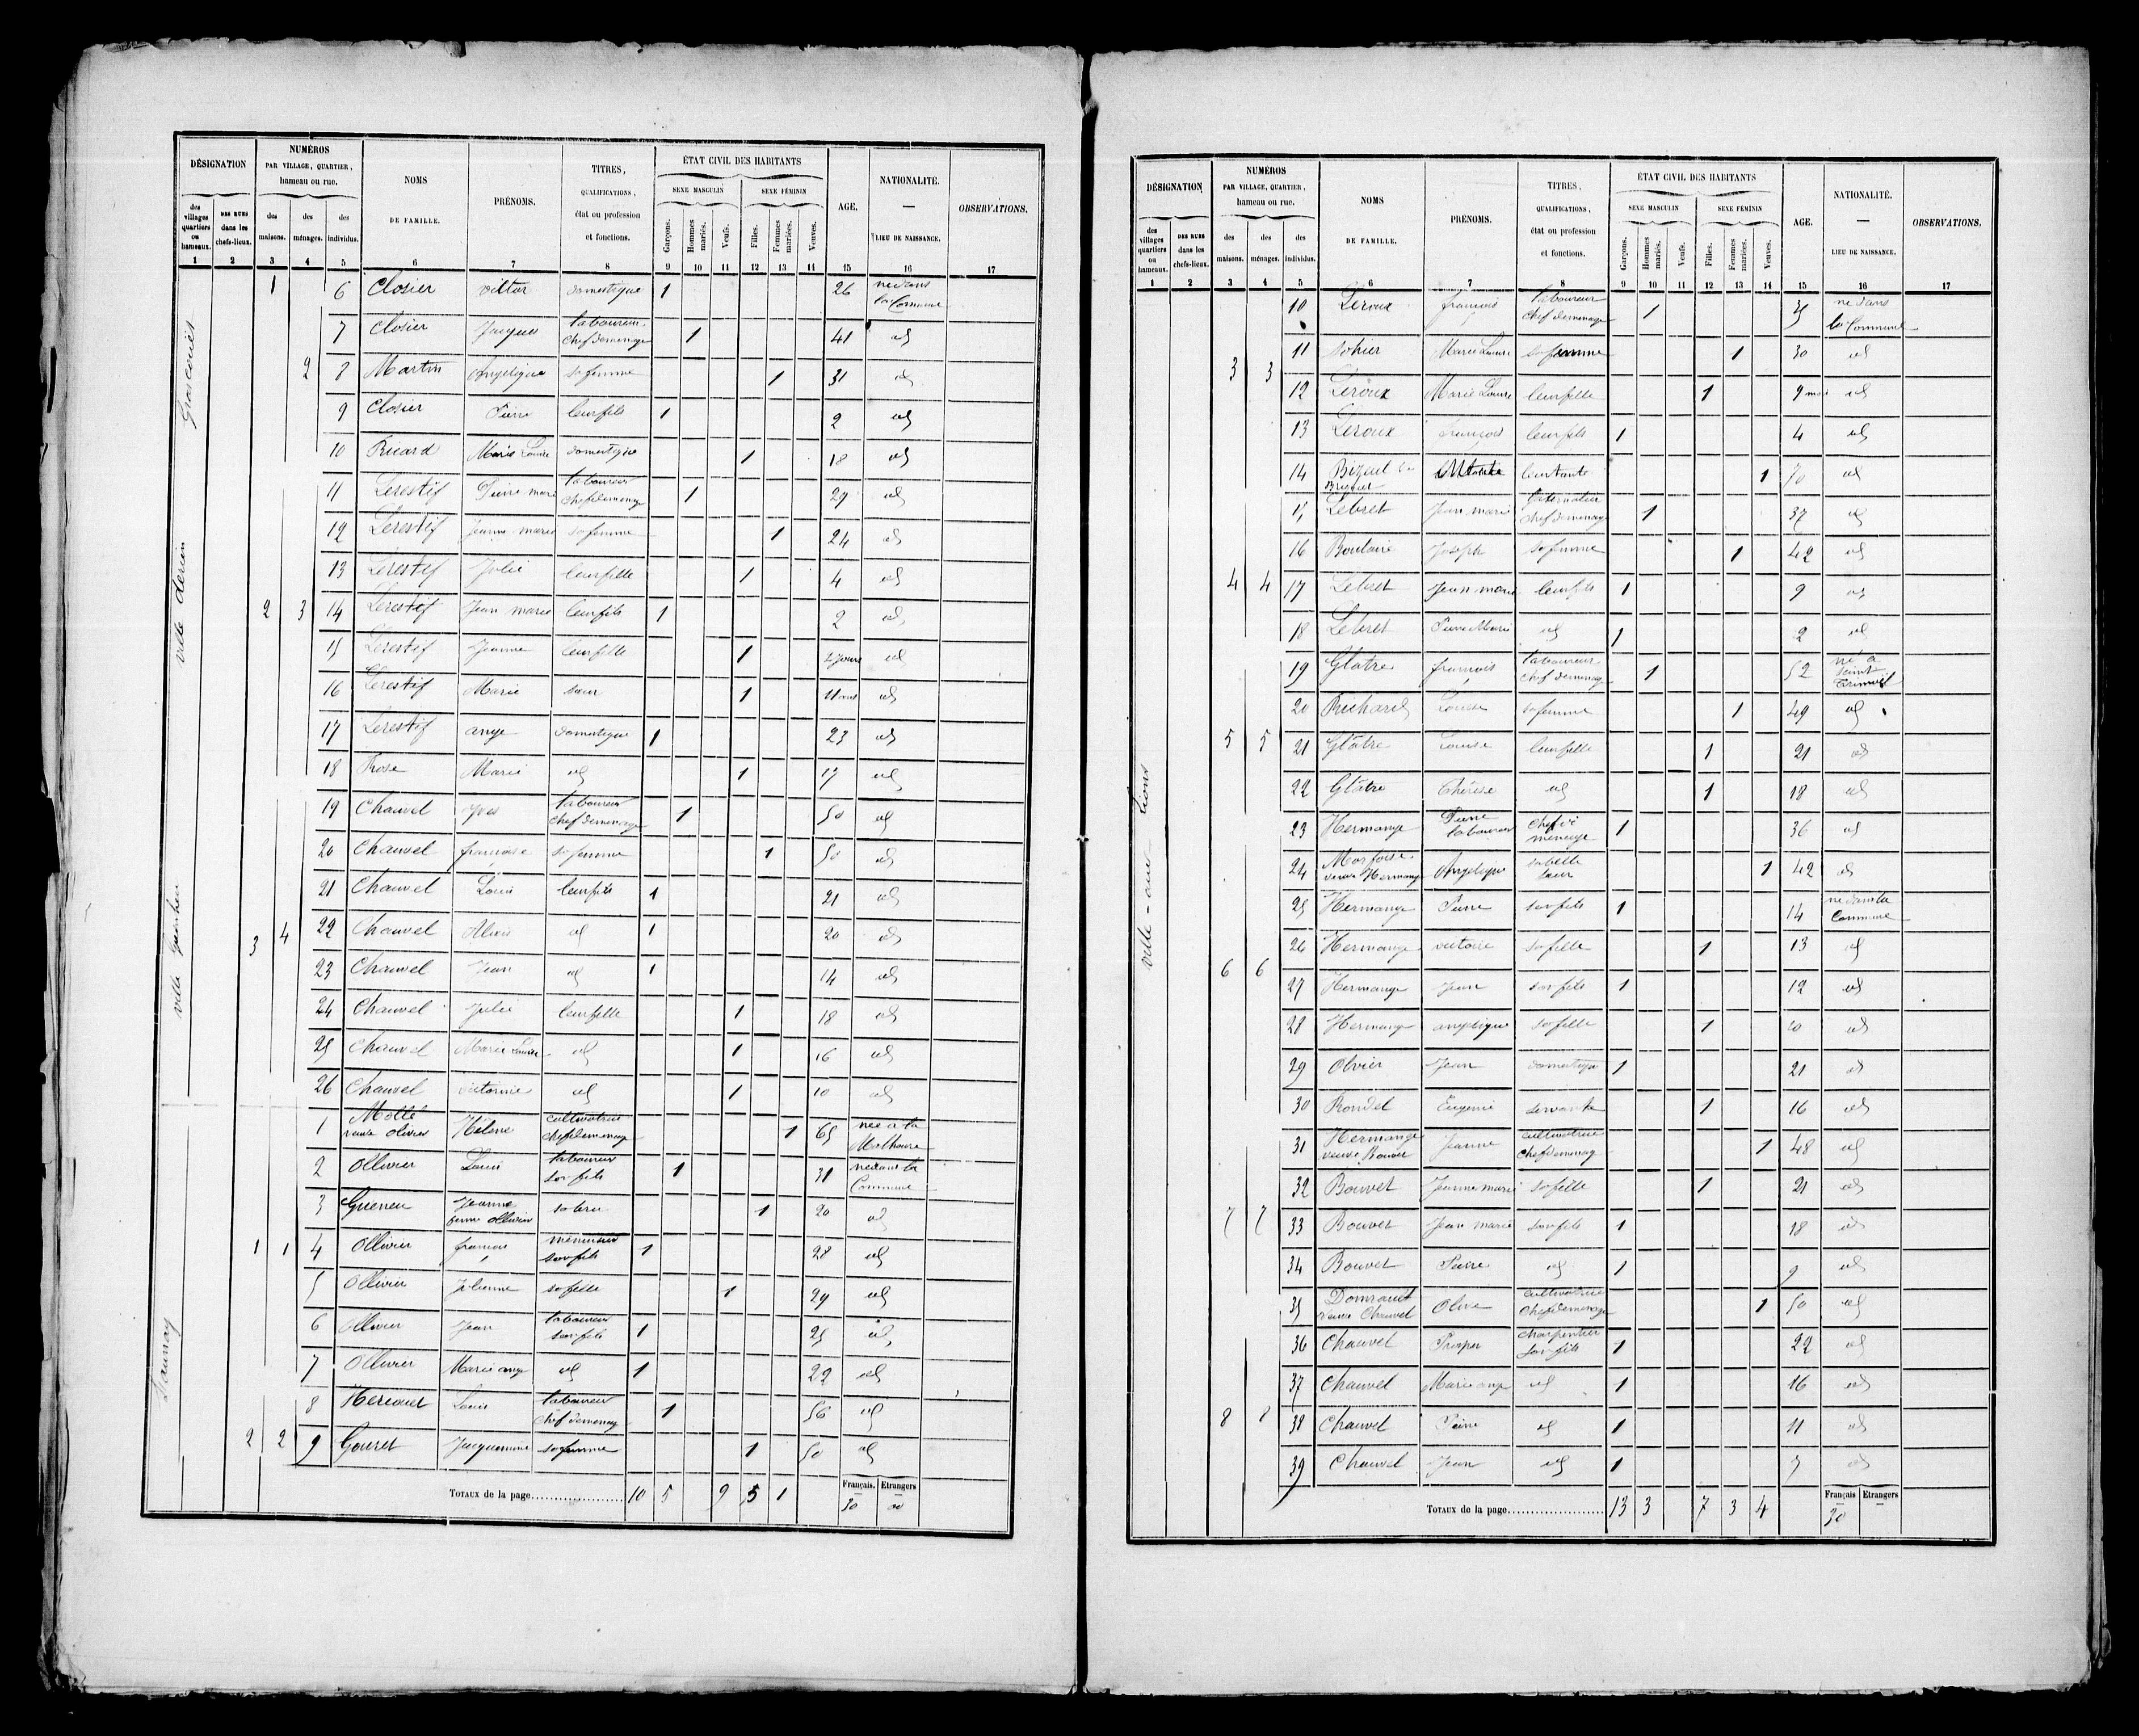 DÉSIGNATION
NUMÉROS
PAR VILLAGE, QUARTIER,
hameau ou rue.
NOMS
DE FAMILLE.
PRÉNOMS.
TITRES,
QUALIFICATIONS,
état ou profession
et fonctions.
ÉTAT CIVIL DES HABITANTS
SEXE MASCULIN
SEXE FÉMININ
AGE.
NATIONALITÉ.
—
LIEU DE NAISSANCE.
OBSERVATIONS.
des villages quartiers ou hameaux.
DES RUES dans les chefs-lieux.
des maisons.
des ménages.
des individus.
Garçons.
Hommes mariés.
Veufs.
Filles.
Femmes mariées.
Veuves.
1 2 3 4 5 6 7 8 9 10 11 12 13 14 15 16 17
ville derien
ville Guinheu
Launay
1 6 Closier victor domestique 1 26 né dans la Commune
7 Closier Jacques laboureur chef de menage 1 41 id
2 8 Martin Angelique sa femme 1 31 id
9 Closier Pierre leur fils 1 2 id
10 Ricard Marie Louise domestique 1 18 id
11 Lerestif Pierre marie laboureur chef de menage 1 29 id
12 Lerestif Jeanne marie sa femme 1 24 id
13 Lerestif Julie leur fille 1 4 id
2 3 14 Lerestif Jean marie leur fils 1 2 id
15 Lerestif Jeanne leur fille 1 2 jours id
16 Lerestif Marie sœur 1 id
17 Lerestif ange domestique 1 23 id
18 Rose Marie id 1 17 id
19 Chauvel Yves laboureur chef de menage 1 50 id
20 Chauvel françoise sa femme 1 50 id
21 Chauvel Louis leur fils 1 21 id
3 4 22 Chauvel Alexis id 1 20 id
23 Chauvel Jean id 1 14 id
24 Chauvel Julie leur fille 1 18 id
25 Chauvel Marie Louise id 1 16 id
26 Chauvel victorine id 1 10 id
1 Mollé veuve olivier Hélène cultivatrice chef de menage 1 65 née a la Malhoure
2 Ollivier Louis laboureur son fils 1 31 né dans la Commune
3 Gueneu Jeanne feme ollivier sa bru 1 20 id
1 1 4 Ollivier françois menuisier son fils 1 28 id
5 Ollivier Julienne sa fille 1 29 id
6 Ollivier Jean laboureur son fils 1 25 id
7 Ollivier Marie ange id 1 22 id
8 Hercouet Louis laboureur chef de menage 1 56 id
2 2 9 Gouret Jacquemine sa femme 1 50 id
TOTAUX de la page 10 5 9 5 1
Français. 30
Etrangers 00
DÉSIGNATION
NUMÉROS
PAR VILLAGE, QUARTIER,
hameau ou rue.
NOMS
DE FAMILLE.
PRÉNOMS.
TITRES,
QUALIFICATIONS,
état ou profession
et fonctions.
ÉTAT CIVIL DES HABITANTS
SEXE MASCULIN
SEXE FÉMININ
AGE.
NATIONALITÉ.
—
LIEU DE NAISSANCE.
OBSERVATIONS.
des villages quartiers ou hameaux.
DES RUES dans les chefs-lieux.
des maisons.
des ménages.
des individus.
Garçons.
Hommes mariés.
Veufs.
Filles.
Femmes mariées.
Veuves.
1 2 3 4 5 6 7 8 9 10 11 12 13 14 15 16 17
ville-aux-Lions
10 Leroux françois laboureur chef de menage 1 35 né dans la Commune
11 Sohier Marie Louise sa femme 1 30 id
3 3 12 Leroux Marie Louise leur fille 1 9 mois id
13 Leroux françois leur fils 1 4 id
14 Bizeul leur tante 1 70 id
15 Lebret Jean marie chef de menage 1 37 id
16 Boulaire Joseph sa femme 1 42 id
4 4 17 Lebret Jean marie leur fils 1 9 id
18 Lebret Pierre Marie id 1 2 id
19 Glâtre françois laboureur chef de menage 1 52 né a Saint Trimoël
20 Richard Louise sa femme 1 49 id
5 5 21 Glâtre Louise leur fille 1 21 id
22 Glâtre Thérèse id 1 18 id
23 Hermange Pierre laboureur chef de menage 1 36 id
24 Morfoise veuve Hermange Angelique sa belle sœur 1 42 id
25 Hermange Pierre son fils 1 14 né dans la Commune
26 Hermange victoire sa fille 1 13 id
6 6 27 Hermange Jean son fils 1 12 id
28 Hermange angelique sa fille 1 10 id
29 Olivier Jean domestique 1 21 id
30 Rondel Eugenie servante 1 16 id
31 Hermange veuve Bouvet Jeanne cultivatrice chef de menage 1 48 id
32 Bouvet Jeanne marie sa fille 1 21 id
7 7 33 Bouvet Jean marie son fils 1 18 id
34 Bouvet Pierre id 1 9 id
35 Domrault veuve Chauvel Olive cultivatrice chef de menage 1 50 id
36 Chauvel Prosper charpentier son fils 1 22 id
37 Chauvel Marie ange id 1 16 id
8 8 38 Chauvel Pierre id 1 11 id
39 Chauvel Jean id 1 7 id
TOTAUX de la page 13 3 7 3 4
Français 30
Etrangers